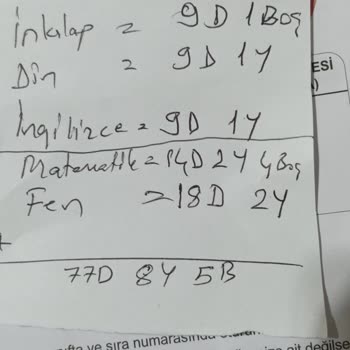 İnkılap = 9D 1Boş
Din = 9D 1Y
İngilizce = 9D 1Y
Matematik = 14D 2Y 4Boş
Fen = 18D 2Y
+
77D 8Y 5B
ESİ
ve sıra numarasında